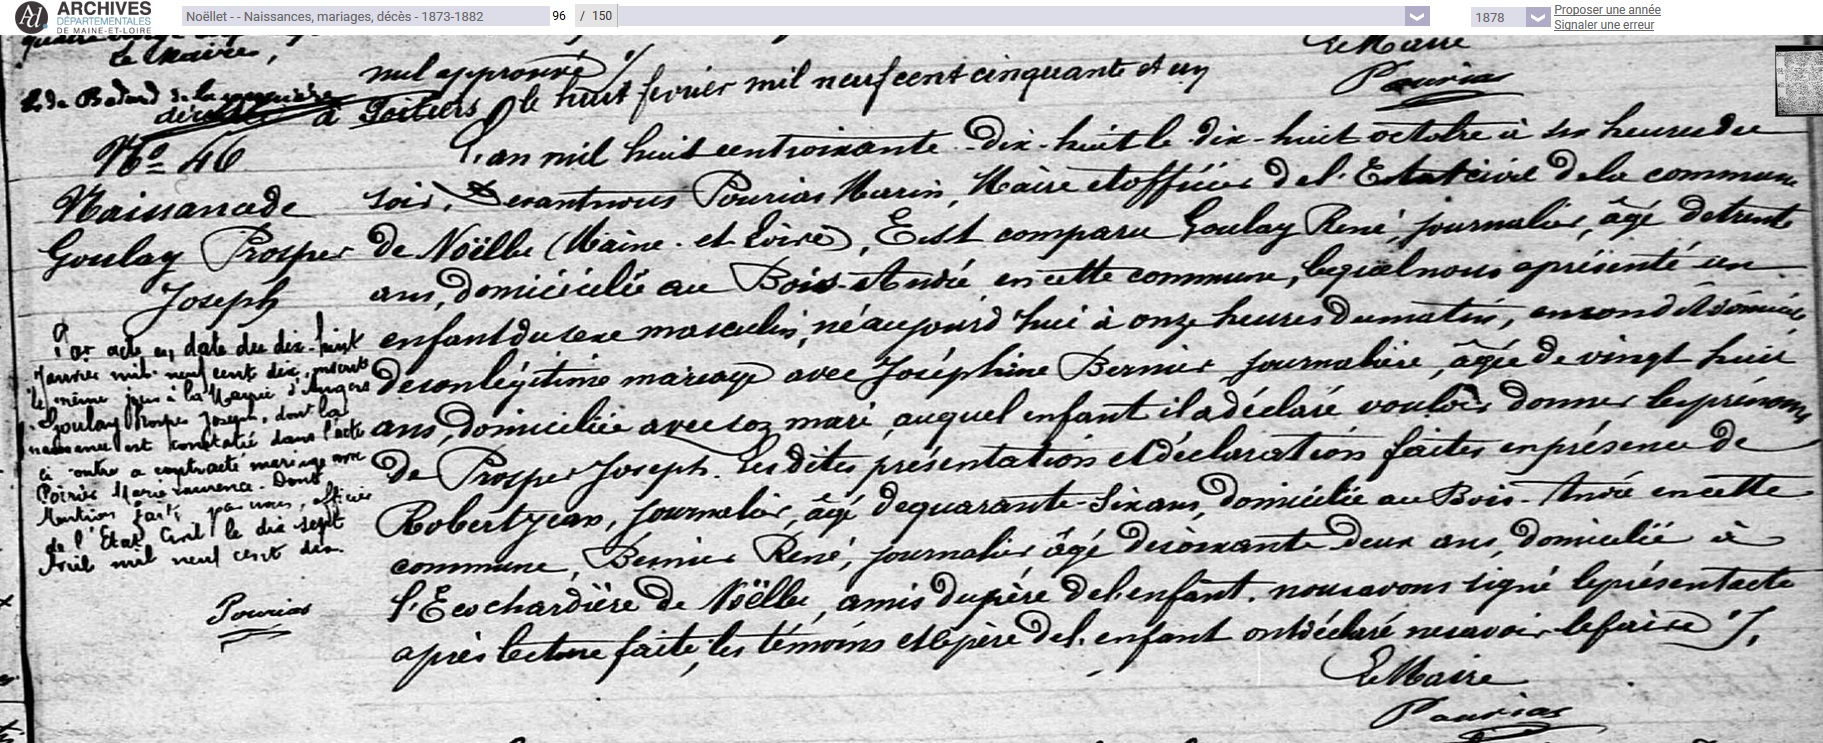 ARCHIVES
DÉPARTEMENTALES
DE MAINE-ET-LOIRE
Noëllet - - Naissances, mariages, décès - 1873-1882
96 / 150
1878
Proposer une année
Signaler une erreur
le Maire,
Le Maire
Pourias
nul approuvé
de Bodard de la
décédé à Poitiers le huit février mil neuf cent cinquante et un
No 46
Naissance de
Goulay Prosper
Joseph
L'an mil huit cent soixante-dix-huit le dix-huit octobre à six heures du
soir, Devant nous Pourias Marin, Maire et officier de l'Etat civil de la commune
de Noëllet (Maine-et-Loire), Est comparu Goulay René, journalier, âgé de trente
ans, domicilié au Bois-André en cette commune, lequel nous a présenté un
enfant du sexe masculin, né aujourd'hui à onze heures du matin, en son dit domicile
de son légitime mariage avec Joséphine Bernier journalière, âgée de vingt huit
ans, domiciliée avec son mari, auquel enfant il a déclaré vouloir donner les prénoms
de Prosper Joseph. Les dites présentation et déclaration faites en présence de
Robert Jean, journalier, âgé de quarante-six ans, domicilié au Bois-André en cette
commune, Bernier René, journalier âgé de soixante deux ans, domicilié à
l'Ecochardière de Noëllet, amis du père de l'enfant. nous avons signé le présent acte
après lecture faite, les témoins et le père de l'enfant ont déclaré ne savoir le faire ./.
Le Maire
Pourias
Par acte en date du dix-huit
Janvier mil neuf cent dix, inscrit
le même jour à la Mairie d'Angers
Goulay Prosper Joseph, dont la
naissance est constatée dans l'acte
ci contre a contracté mariage avec
Poirier Marie Laurence. Dont
Mention faite par nous, officier
de l'Etat Civil le dix-sept
Avril mil neuf cent dix.
Pourias